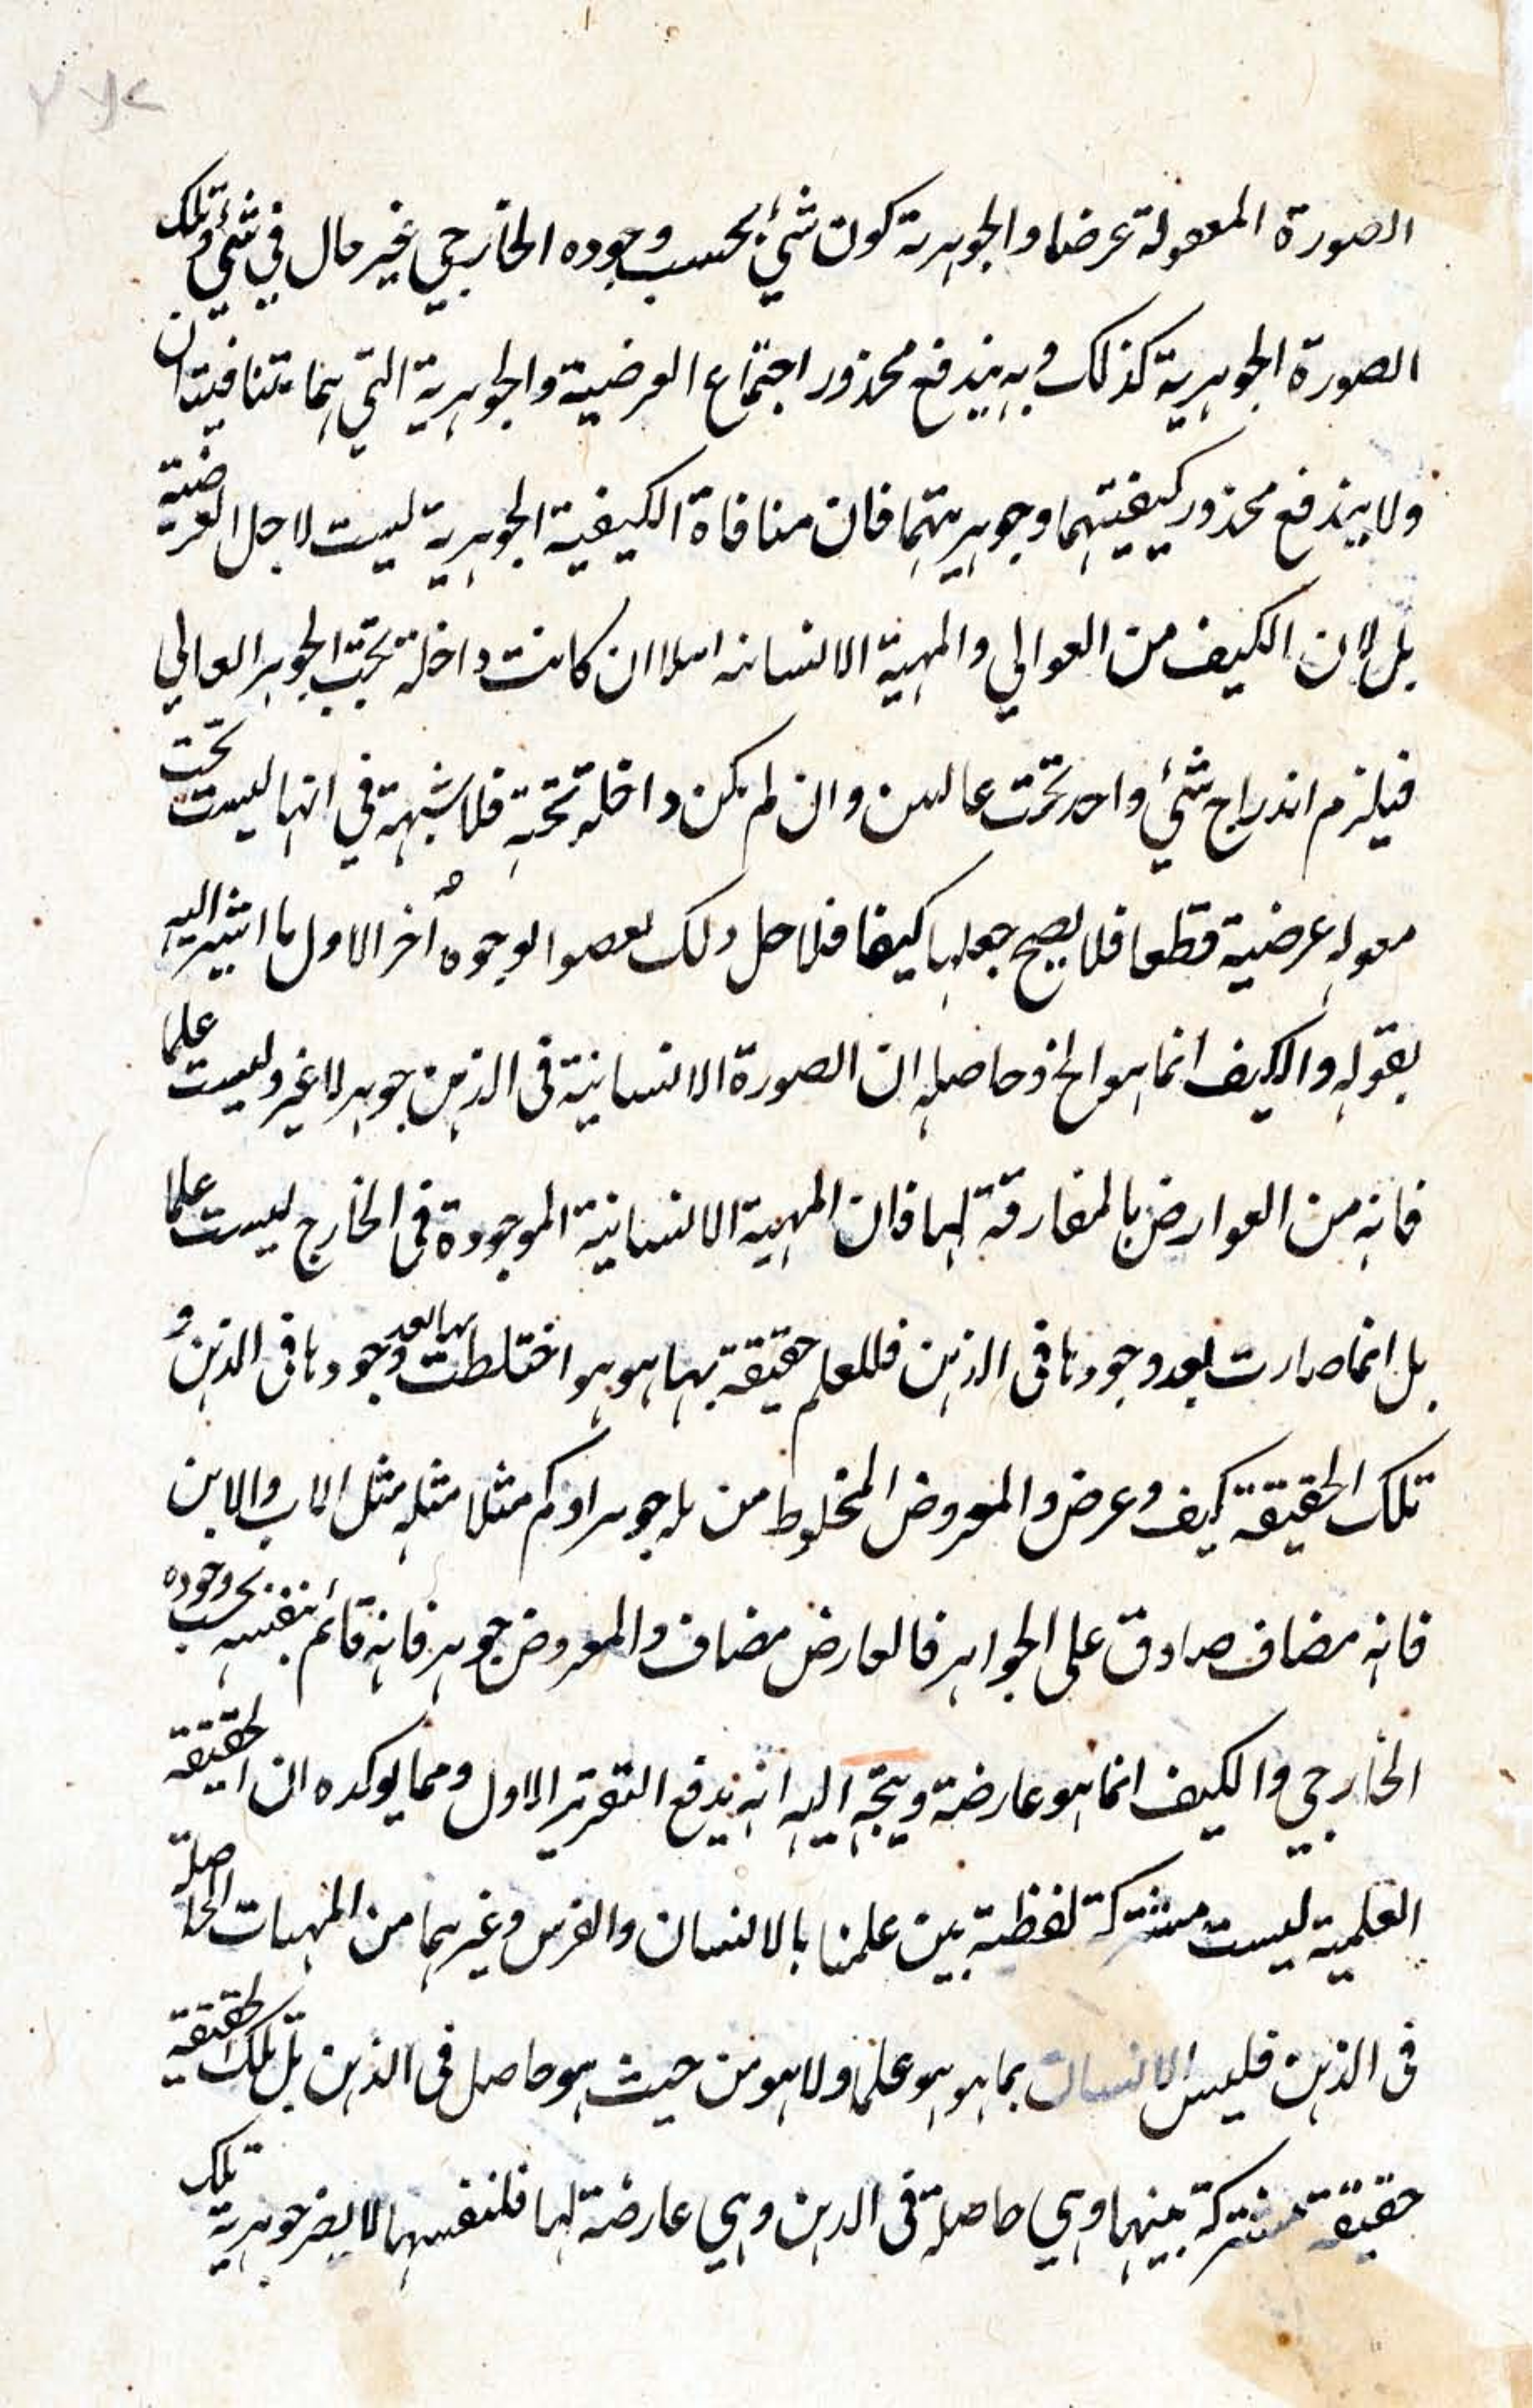 الصورة المعقولة عرضا والجوهرية كون شئ بحسب وجوده الخارجي غير حال في شئ وتلك
الصورة الجوهرية كذلك وبه يندفع محذور اجتماع العرضية والجوهرية التي هما متنافيتان
ولا يندفع محذور كيفيتهما وجوهريتهما فان منافاة الكيفية الجوهرية ليست لاجل العرضية
بل لان الكيف من العوالي والمهية الانسانه مثلا ان كانت داخلة تحت الجوهر العالي
فيلزم اندراج شئ واحد تحت عاليين وان لم يكن داخله تحته فلا شبهة في انها ليست تحت
مقوله عرضية قطعا فلا يصح جعلها كيفا فلاجل ذلك الوجوه أخر الاول ما اشير اليه
بقوله والكيف انما هو الخ وحاصله ان الصورة الانسانية فى الذهن جوهر لا غير وليست علما
فانه من العوارض بالمفارقة لها فان المهية الانسانية الموجودة فى الخارج ليست علما
بل انما صارت بعد وجودها فى الذهن فللعلم حقيقة بها هو هو اختلطت بها بعد وجودها فى الذهن و
تلك الحقيقة كيف وعرض والمعروض المخلوط من له جوهر او كم مثلا مثله مثل الاب والابن
فانه مضاف صادق على الجواهر فالعارض مضاف والمعروض جوهر فانه قائم بنفسه بحسب وجوده
الخارجي والكيف انما هو عارضة ويتجه اليه انه يدفع التقرير الاول ومما يوكده ان الحقيقة
العلمية ليست مشتركة لفظية بين علمنا بالانسان والفرس وغيرهما من المهيات الحاصلة
فى الذهن فليس الانسان بما هو هو علما ولا هو من حيث هو حاصل فى الذهن بل تلك الحقيقة
حقيقة مشتركة بينهما وهي حاصلة فى الذهن وهي عارضة لها فلنفسها لا يضر جوهرية تلك